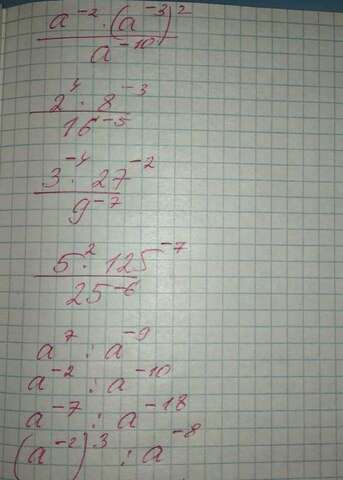 a⁻² · (a⁻³)²
a⁻¹⁰
2⁴ · 8⁻³
16⁻⁵
3⁻⁴ · 27⁻²
9⁻⁷
5² · 125⁻⁷
25⁻⁶
a⁷ : a⁻⁹
a⁻² : a⁻¹⁰
a⁻⁷ : a⁻¹⁸
(a⁻²)³ : a⁻⁸